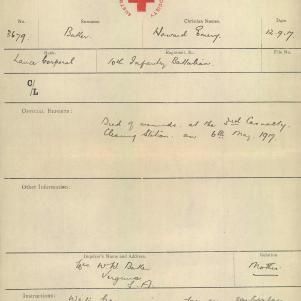 No. Surname. Christian Names. Date.
3679. Baker. Howard Emery. 12.9.17
Rank. Regiment, &c. File No.
Lance Corporal 10th Infantry Battalion.
C/L
OFFICIAL REPORTS:
Died of wounds at the 3rd Casualty
Clearing Station on 6th May, 1917.
Other Information:
Inquirer's Name and Address. Relation
Mrs W. H. Baker Mother.
Virginia
S. A.
Instructions: